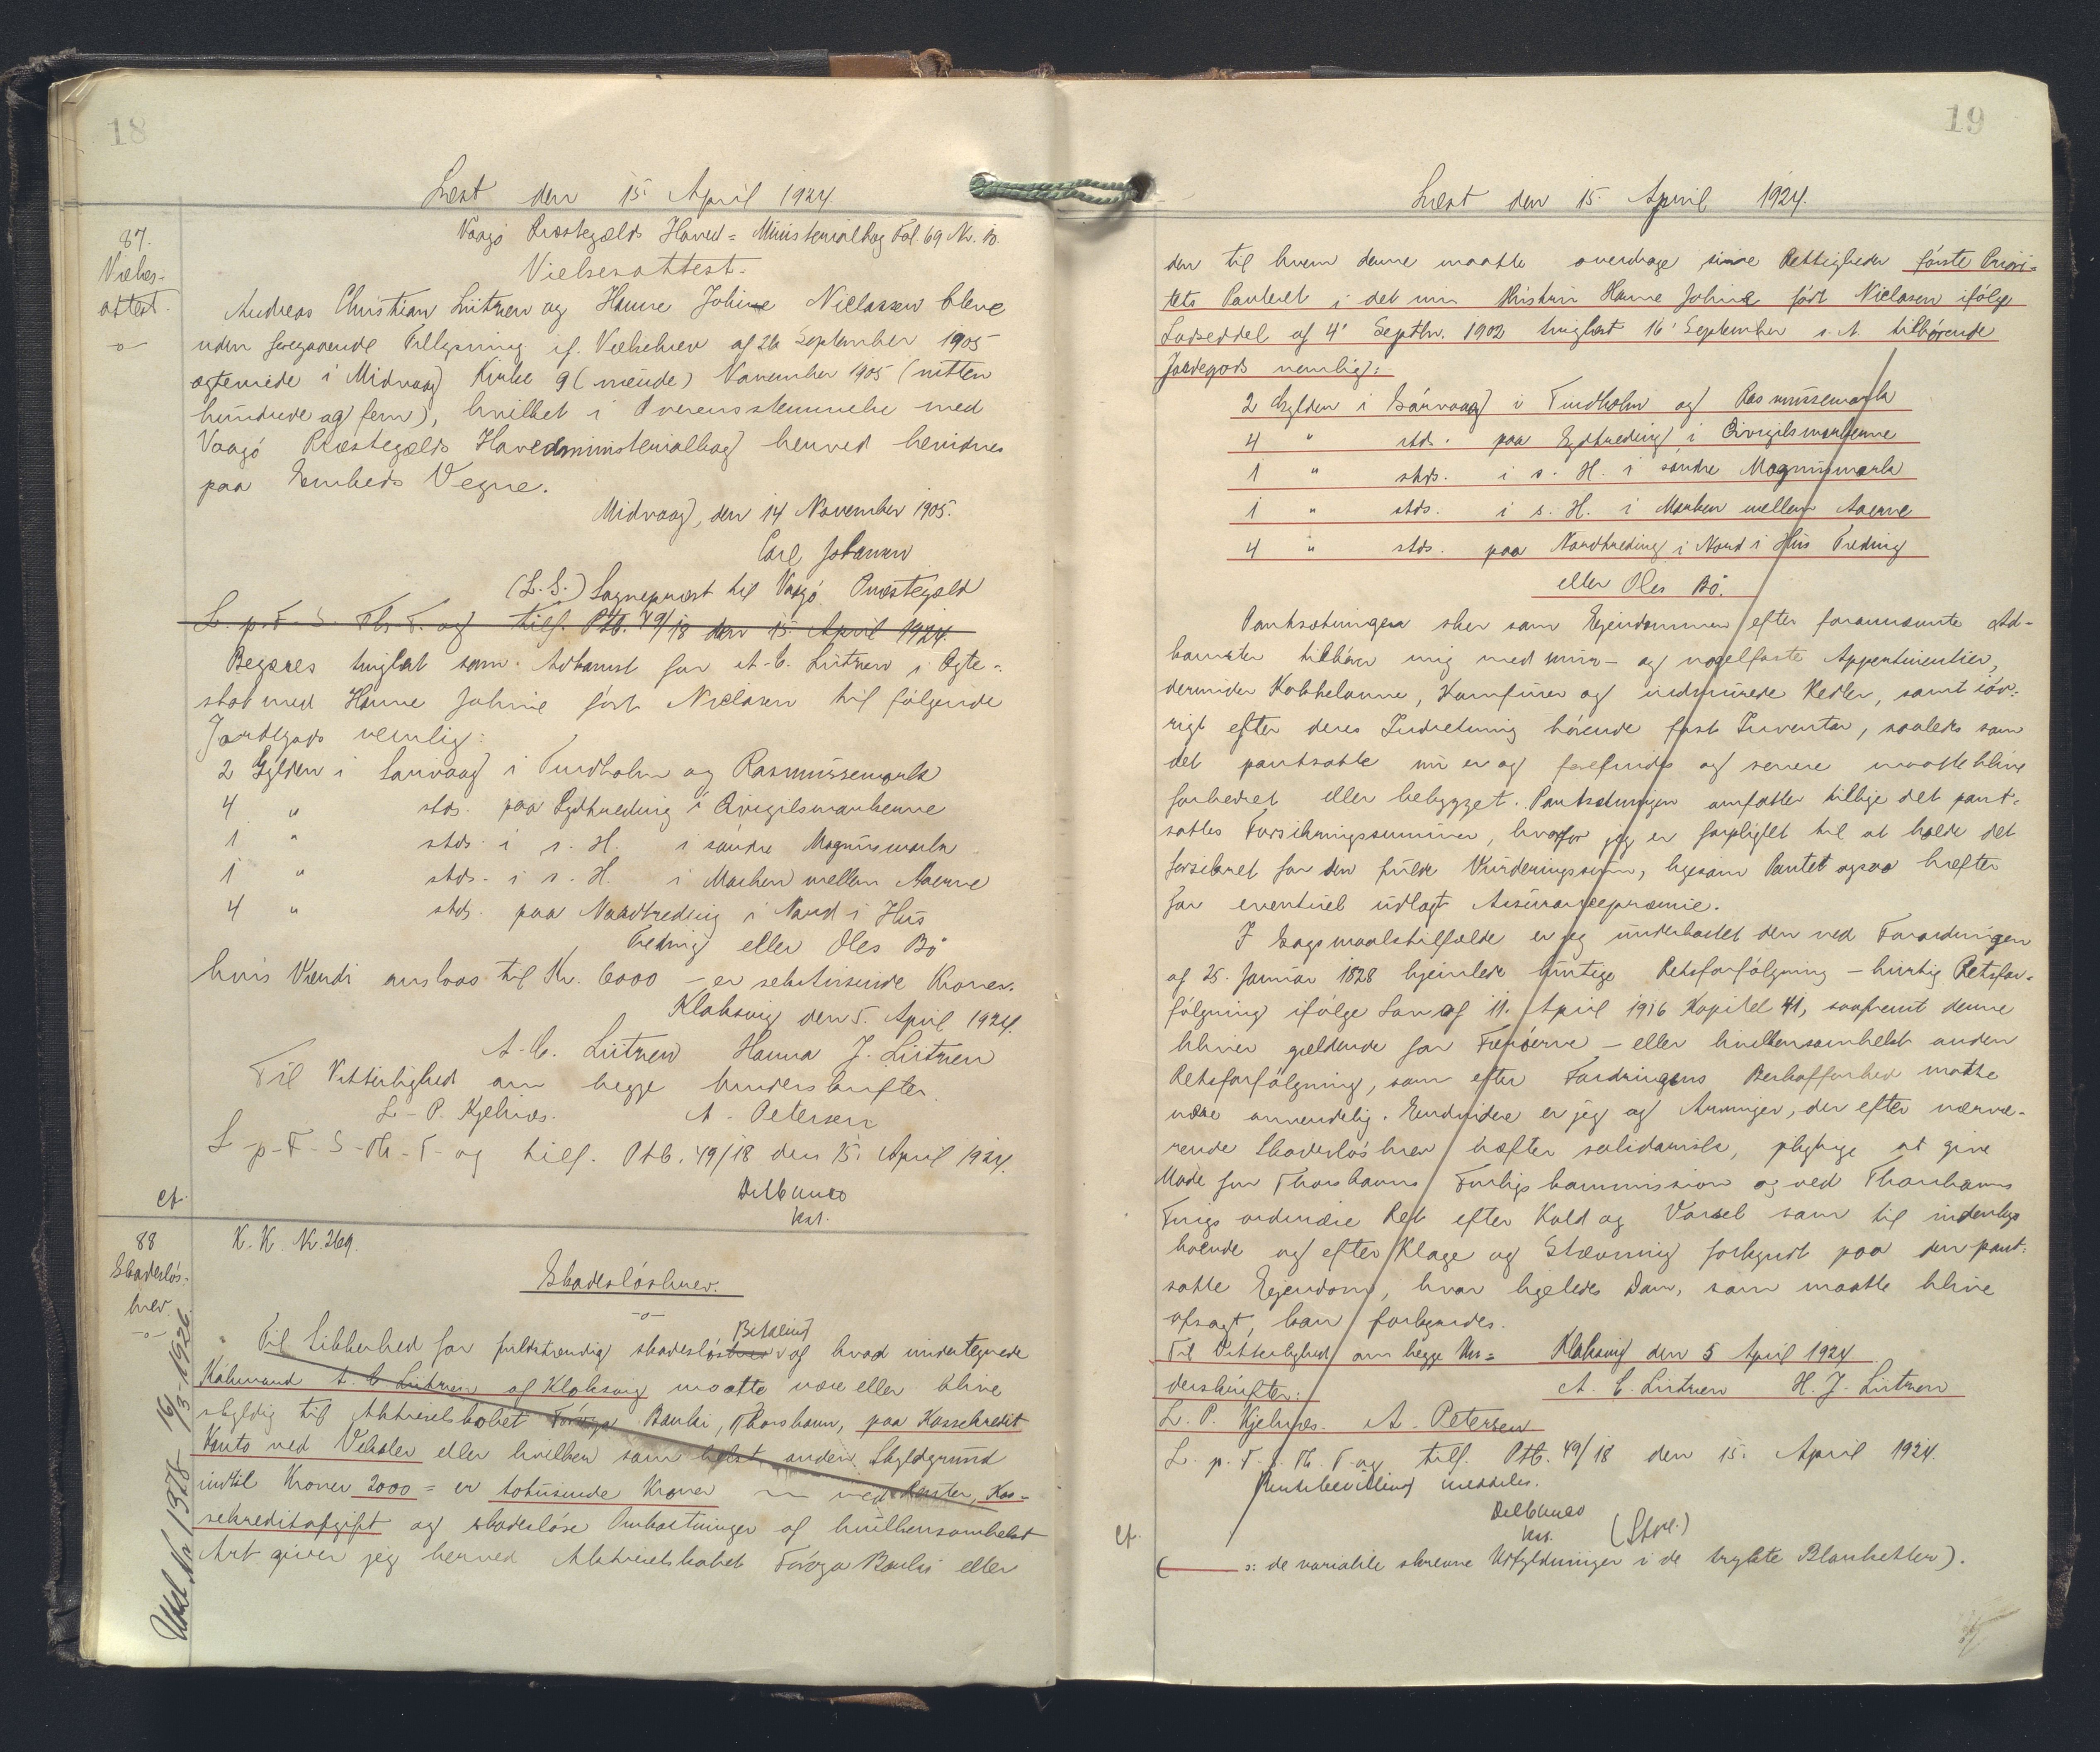 18
Læst den 15. April 1924.
87.
Vielses-
attest.
Vaagø Præstegælds Hoved = Ministerialbog Fol. 69 Nr. 10.
Vielsesattest.
Andreas Christian Lützen og Hanne Johine Niclassen bleve
uden foregaaende Tillysning if. Vielsebrev af 26 September 1905
ægteviede i Midvaag Kirke 9 (niende) November 1905 (nitten
hundrede og fem), hvilket i Overensstemmelse med
Vaagø Præstegælds Hovedministerialbog herved bevidnes
paa Embeds Vegne.
Midvaag, den 14 November 1905.
Carl Johansen
(L.S.) Sognepræst til Vaagø Præstegæld
L. p. F. S. Th. T. og tilf. Ptb. 49/18 den 15. April 1924.
Begæres tinglæst som Adkomst for A. C. Lützen i Ægte-
skab med Hanne Johine født Niclasen til følgende
Jordegods nemlig:
2 Gylden i Sørvaag i Tindholm og Rasmussemark
4 " stds. paa Sydtreding i Qvigilsmarkenne
1 " stds. i s. H. i søndre Magnusmark
1 " stds. i s. H. i Marken mellem Aaerne
4 " stds. paa Nordtreding i Nord i Hús
Treding eller Oles Bø
hvis Værdi ansloas til Kr. 6000 - er sekstusinde Kroner.
Klaksvig den 5. April 1924.
A. C. Lützen Hanna J. Lützen
Til Vitterlighed om begge Underskrifter.
L. P. Kjelnæs. A. Petersen
L - p - F - S - Th - T - og tilf. Ptb. 49/18 den 15. April 1924.
Delbanco
kst.
cf.
88
Skadesløs-
brev.
K. K. Nr. 269.
Skadesløsbrev.
Til Sikkerhed for fuldstændig skadesløsbrev Betaling af hvad undertegnede
Købmand A. C. Lützen af Klaksvig maatte være eller blive
skyldig til Aktieselskabet Føroya Banki, Thorshavn, paa Kassekredit
Konto ved Veksler eller hvilken som helst anden Skyldgrund
indtil Kroner 2000 = er totusinde Kroner ~ med Renter, Kas-
sekreditafgift og skadesløse Omkostninger af hvilkensomhelst
Art giver jeg herved Aktieselskabet Føroya Banki eller
Udsl. No 1378 16/3-1926.
19
Læst den 15. April 1924.
den til hvem denne maatte overdrage sine Rettigheder første Priori-
tets Panteret i det min Hustru Hanne Johine født Niclasen ifølge
Lodseddel af 4' Septbr. 1902 tinglæst 16' September s. A. tilhørende
Jordegods nemlig:
2 Gylden i Sørvaag i Tindholm og Rasmussemark
4 " stds. paa Sydtreding i Qvigilsmarkenne
1 " stds. i s. H. i søndre Magnusmark
1 " stds. i s. H. i Marken mellem Aaerne
4 " stds. paa Nordtreding i Nord i Hús Treding
eller Oles Bø.
Pantsætningen sker som Ejendommen efter forannævnte Ad-
komster tilhører mig med mur- og nagelfaste Appertinentier,
derunder Kakkelovne, Komfurer og indmurede Kedler, samt iøv-
rigt efter deres Indretning hørende fast Inventar, saaledes som
det pantsatte nu er og forefindes og senere maatte blive
forbedret eller bebygget. Pantsætningen omfatter tillige det pant-
sattes Forsikringssummer, hvorfor jeg er forpligtet til at holde det
forsikret for den fulde Vurderingssum, ligesom Pantet ogsaa hæfter
for eventuel udlagt Assurancepræmie.
I Søgsmaalstilfælde er jeg underkastet den ved Forordningen
af 25. Januar 1828 hjemlede hurtige Retsforfølgning - hurtig Retsfor-
følgning ifølge Lov af 11. April 1916 Kapitel 41, saafremt denne
bliver gældende for Færøerne - eller hvilkensomhelst anden
Retsforfølgning, som efter Fordringens Beskaffenhed maatte
være anvendelig. Endvidere er jeg og Arvinger, der efter nærvæ-
rende Skadesløsbrev hæfter solidarisk, pligtige at give
Møde for Thorshavns Forligskommission og ved Thorshavns
Tings ordinære Ret efter Kald og Varsel som til indenbys
boende og efter Klage og Stævning forkyndt paa den pant-
satte Ejendom, hvor ligeledes Dom, som maatte blive
afsagt, kan forkyndes.
Til Vitterlighed om begge Un= Klaksvig den 5 April 1924
derskrifter: A. C. Lützen H. J. Lützen
L. P. Kjelnæs. A. Petersen
L. p. F. S. Th. T. og tilf. Ptb. 49/18 den 15. April 1924.
Delbanco
kst. (Stpl.)
cf.
( ɔ: de variable skrevne Udfyldninger i de trykte Blanketter).